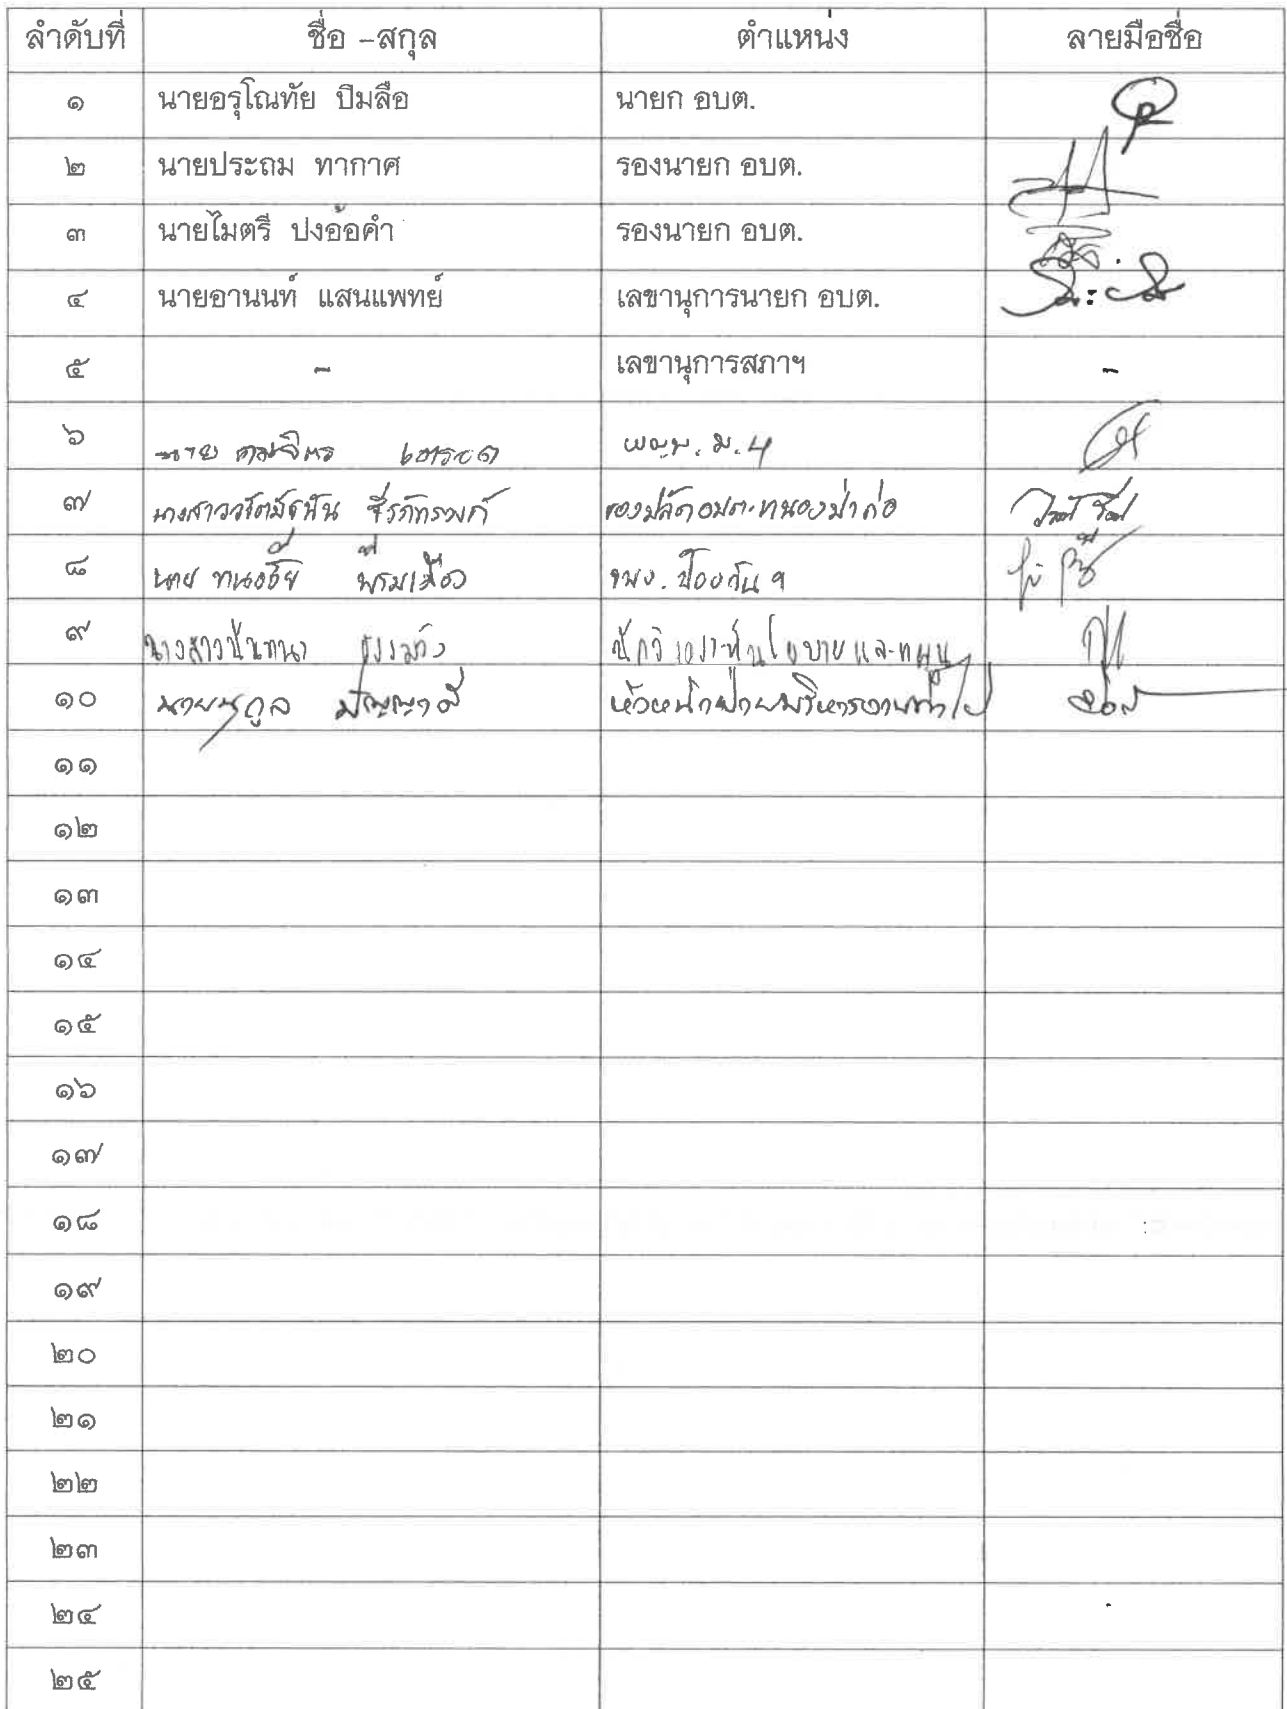 ลำดับที่ ชื่อ -สกุล ตำแหน่ง ลายมือชื่อ
๑ นายอรุโณทัย ปิมลือ นายก อบต.
๒ นายประถม ทากาศ รองนายก อบต.
๓ นายไมตรี ปงอ้อคำ รองนายก อบต.
๔ นายอานนท์ แสนแพทย์ เลขานุการนายก อบต.
๕ - เลขานุการสภาฯ -
๖ นาย ม.4
๗ นางสาว รองปลัด
๘ นาย ป้องกัน ฯ
๙ นางสาวนันทนา นักวิเคราะห์นโยบายและแผน
๑๐ นายนุกูล หัวหน้าฝ่ายบริหารงานทั่วไป
๑๑
๑๒
๑๓
๑๔
๑๕
๑๖
๑๗
๑๘
๑๙
๒๐
๒๑
๒๒
๒๓
๒๔
๒๕